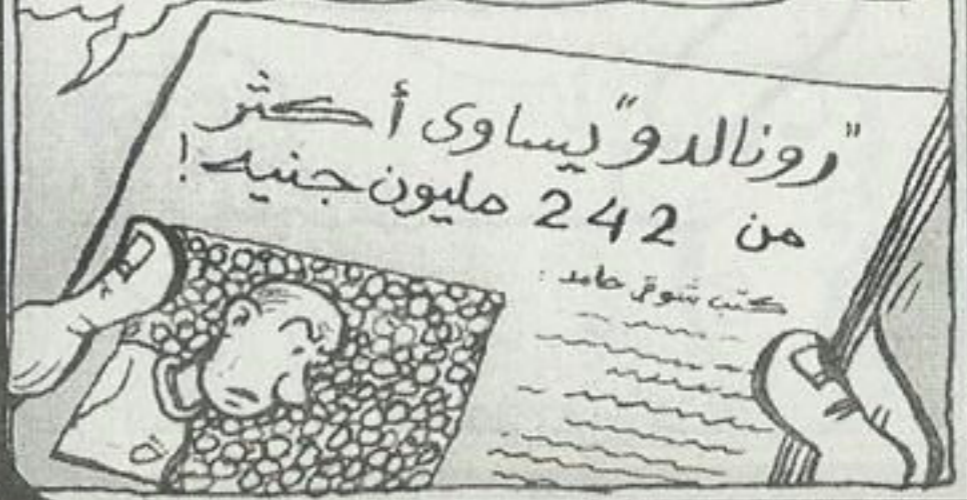 "رونالدو" يساوى أكثر
من 242 مليون جنيه!
كتب شوقى حامد :